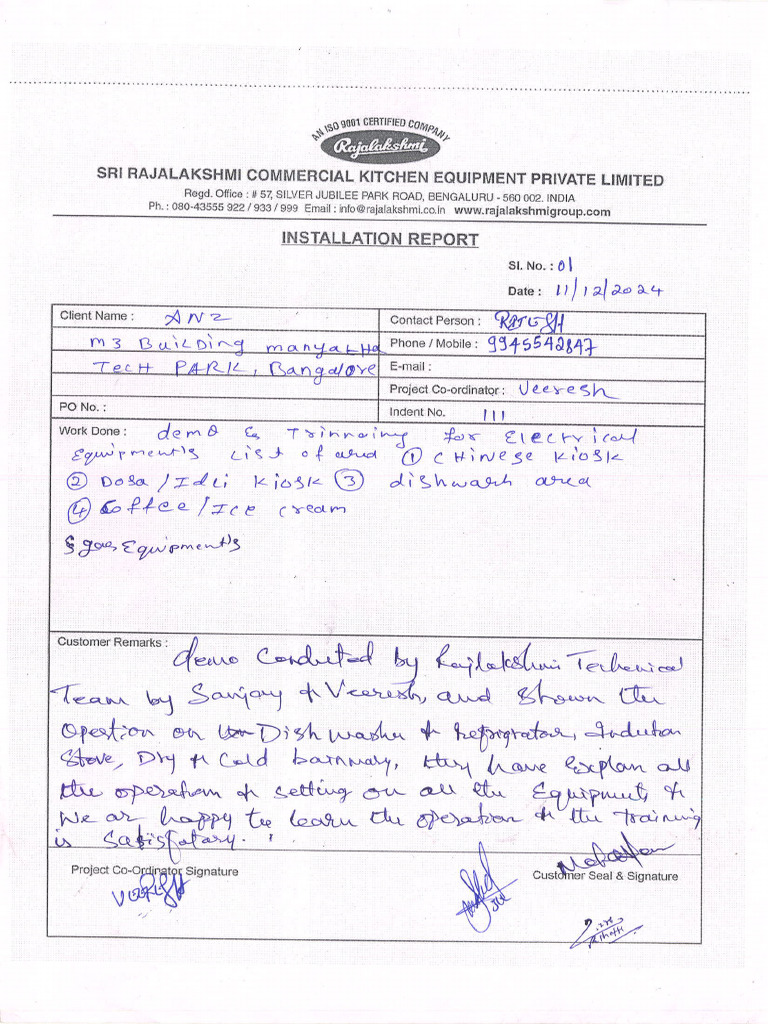 AN ISO 9001 CERTIFIED COMPANY
Rajalakshmi
SRI RAJALAKSHMI COMMERCIAL KITCHEN EQUIPMENT PRIVATE LIMITED
Regd. Office : # 57, SILVER JUBILEE PARK ROAD, BENGALURU - 560 002. INDIA
Ph. : 080-43555 922 / 933 / 999 Email : info@rajalakshmi.co.in www.rajalakshmigroup.com
INSTALLATION REPORT
Sl. No. : 01
Date : 11/12/2024
Client Name : ANZ
M3 Building manyatha
TECH PARK, Bangalore
PO No. :
Contact Person : RAJESH
Phone / Mobile : 9945542847
E-mail :
Project Co-ordinator : Veeresh
Indent No. 111
Work Done : demo & Trinnaing for Electrical
Equipment's List of area ① CHINESE KIOSK
② Dosa / Idli KIOSK ③ dishwash area
④ Coffee / Ice cream
& gas Equipment's
Customer Remarks :
demo Conducted by Rajlakshmi Techenical
Team by Sanjay & Veeresh, and shown the
Opestion on Dish washer & Refrigrator, Induction
Stove, Dry & Cold bainmary, they have Explan all
the operation & setting on all the Equipment &
We are happy to learn the operation & the Training
is Satisfatary.
Project Co-Ordinator Signature
VEERESH
Customer Seal & Signature